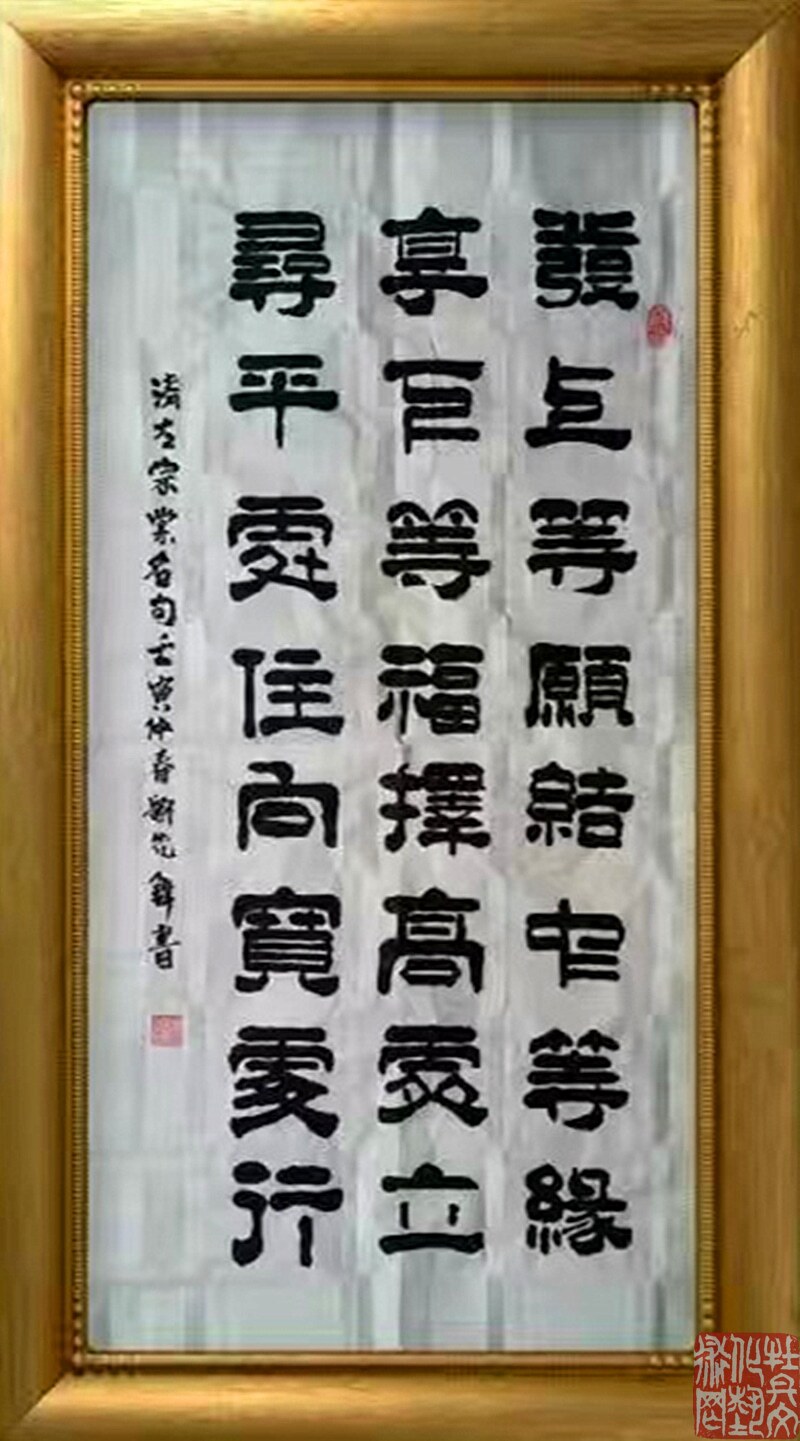 發上等願結中等緣
享下等福擇高處立
尋平處住向寬處行
清左宗棠名句壬寅仲春新花鋒書